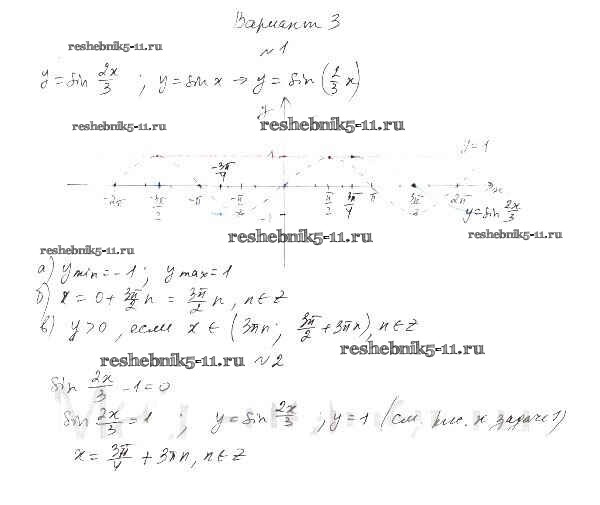 Вариант 3
reshebnik5-11.ru
№1
y = sin 2x/3 ; y = sin x → y = sin (2/3 x)
reshebnik5-11.ru reshebnik5-11.ru
y
1 y=1
-3π/4
-2π -3π/2 -π -π/2 0 π/2 3π/4 π 3π/2 2π x
-1 y=sin 2x/3
reshebnik5-11.ru reshebnik5-11.ru
reshebnik5-11.ru
а) y min = -1 ; y max = 1
б) x = 0 + 3π/2 n = 3π/2 n, n∈Z
в) y>0, если x ∈ (3πn; 3π/2 + 3πn), n∈Z
reshebnik5-11.ru
reshebnik5-11.ru №2
sin 2x/3 - 1 = 0
sin 2x/3 = 1 ; y = sin 2x/3 ; y = 1 (см. рис. к задаче 1)
x = 3π/4 + 3πn, n∈Z